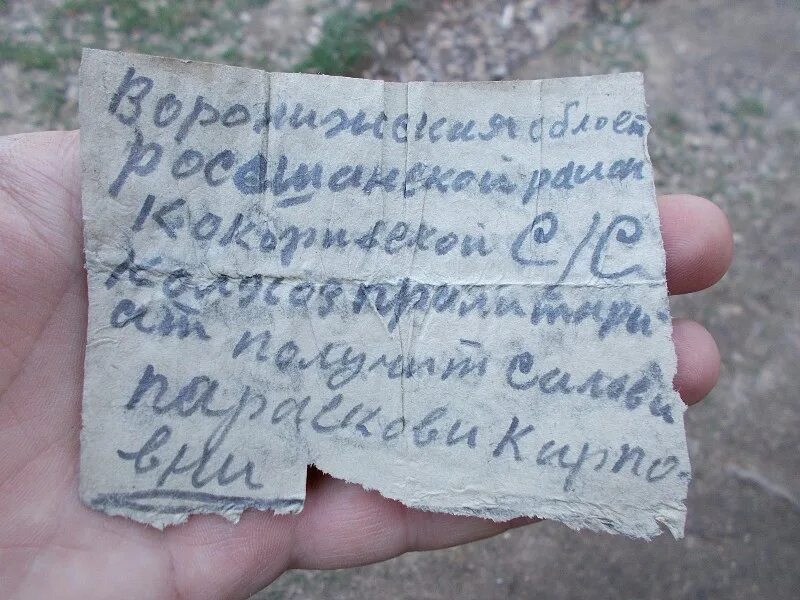 Воронижския облост
Росешанской раион
Кокоривской С/С
Колхоз пролитари-
ат получит Салови
параскови Кирпо-
вни